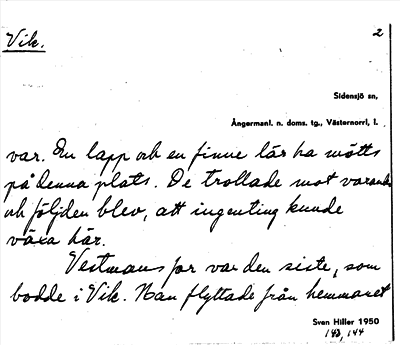 Vik.
2
Sidensjö sn,
Ångermanl. n. doms. tg., Västernorrl, l.
var. En lapp och en finne lär ha mötts
på denna plats. De trollade mot varandra
och följden blev, att ingenting kunde
växa här.
Vestmans par var den siste, som
bodde i Vik. Han flyttade från hemmanet
Sven Hiller 1950
143, 144